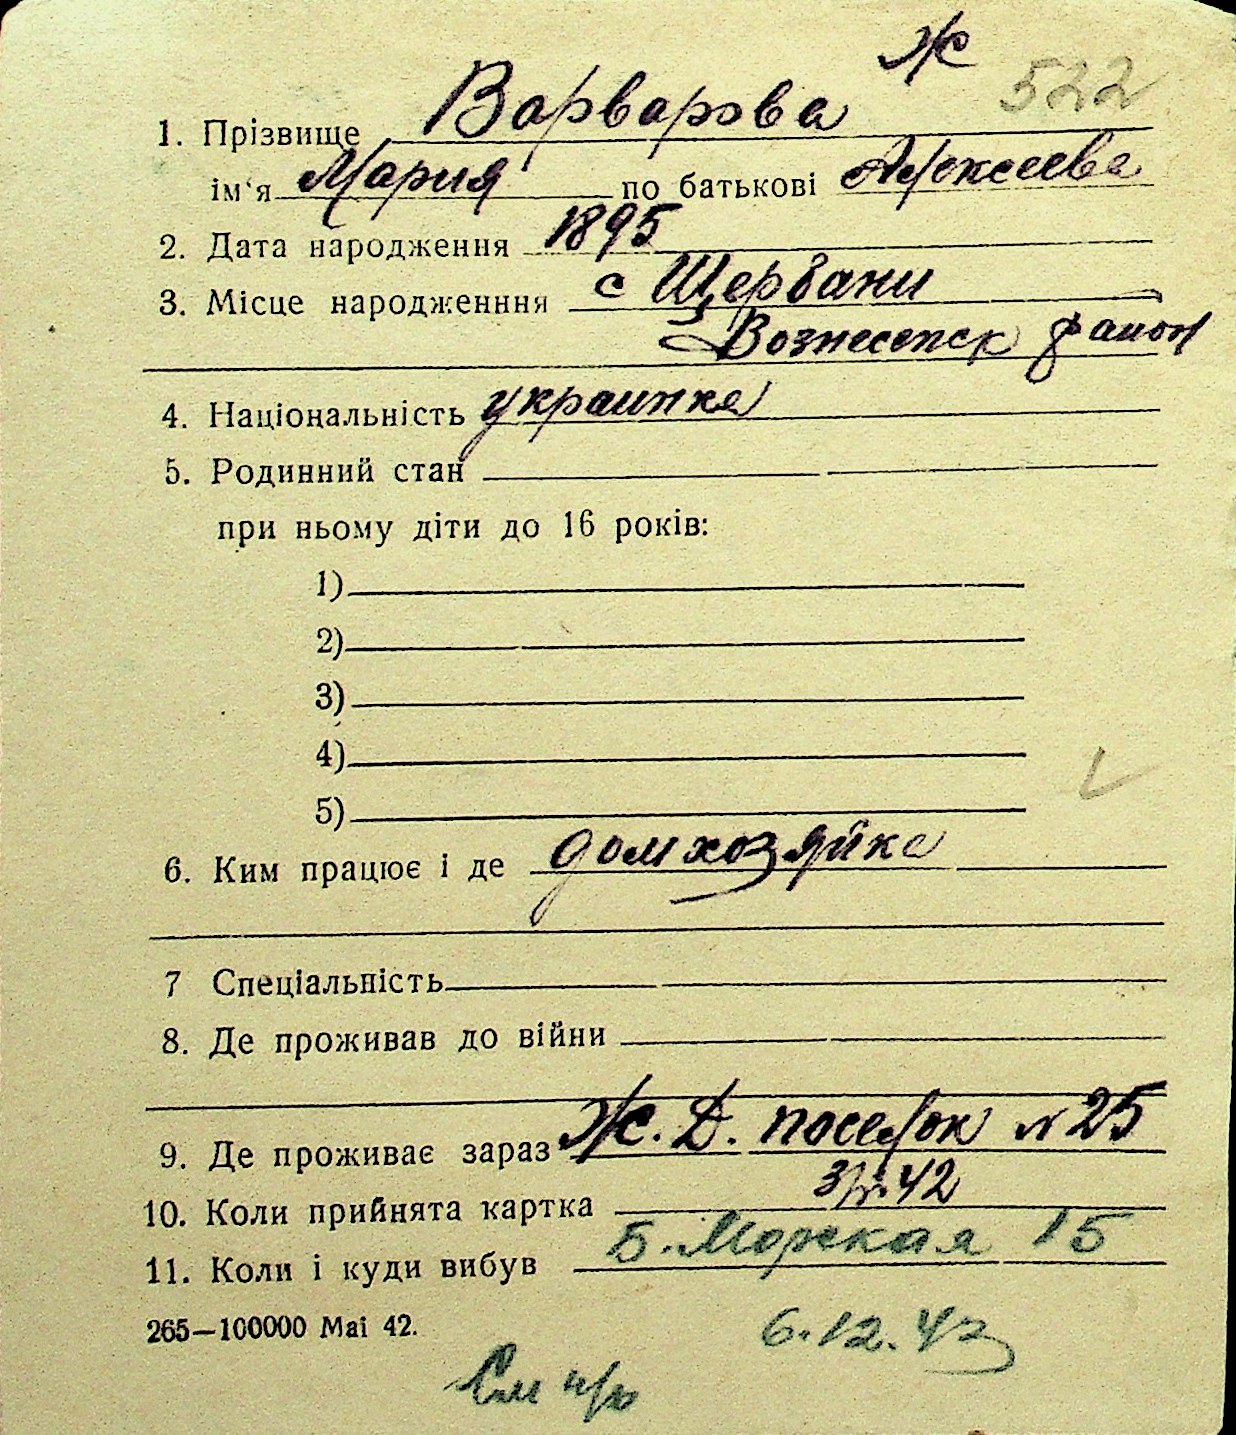 Ж
522
1. Прізвище Варварова
ім'я Мария по батькові Алексеева
2. Дата народження 1895
3. Місце народженння с Щербани
Вознесенск район
4. Національність украинка
5. Родинний стан
при ньому діти до 16 років:
1)
2)
3)
4)
5)
6. Ким працює і де домхозяйка
7 Спеціальність
8. Де проживав до війни
9. Де проживає зараз Ж. Д. поселок № 25
10. Коли прийнята картка 42
11. Коли і куди вибув Б. Морская 15
265—100000 Маі 42.
6.12.42
См